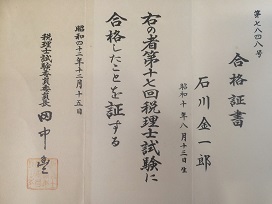 第七八四八号
合格証書
石川金一郎
昭和十年八月十三日生
右の者第十七回税理士試験に
合格したことを証する
昭和四十二年十二月十五日
税理士試験委員委員長 田中